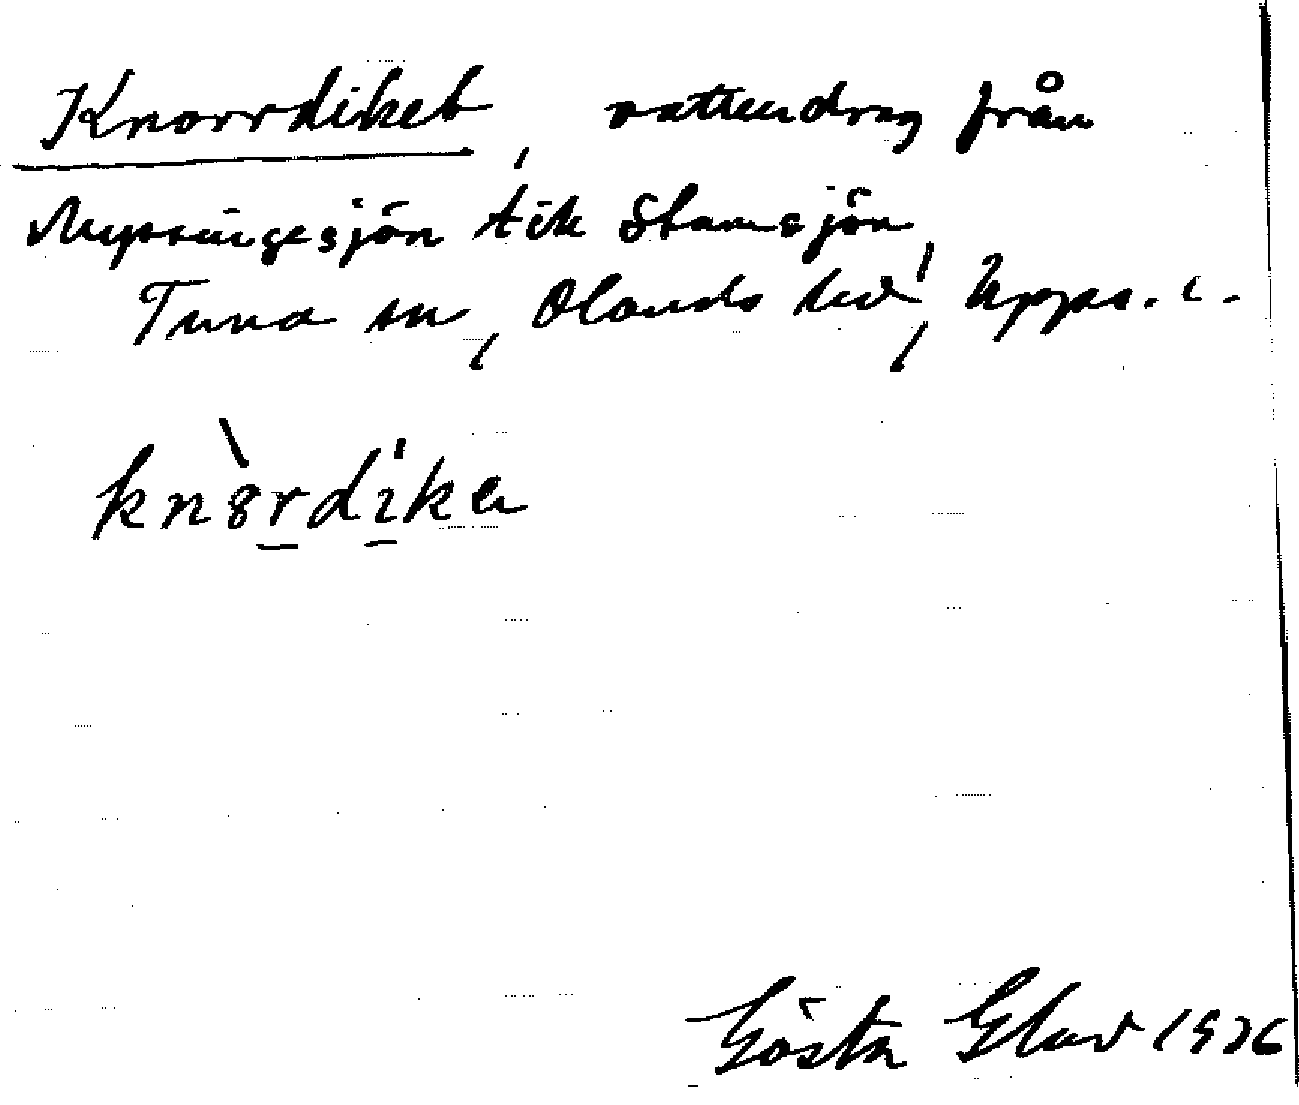 Knorrdiket, vattendrag från
Myssingesjön till Stamsjön,
Tuna sn, Olands hd, Upps. l.
knòrdìkɐ
Gösta Glav 1926